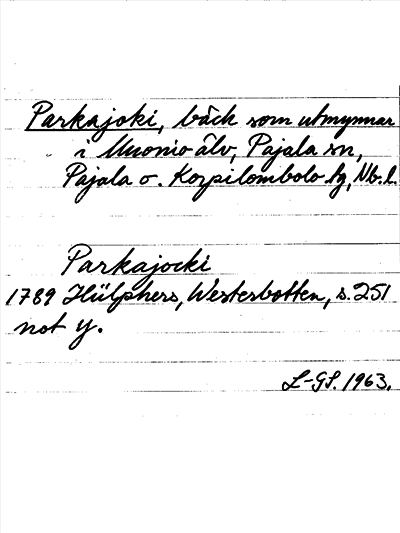 Parkajoki, bäck som utmynnar
i Muonio älv, Pajala sn,
Pajala o. Korpilombolo tg, Nb. l.
Parkajocki
1789 Hülphers, Westerbotten, s. 251
not y.
L-GS. 1963.